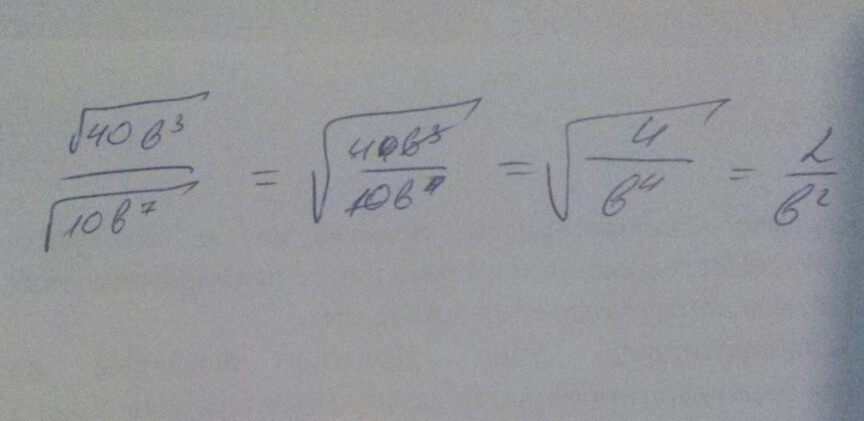 √40b³ / √10b⁷ = √(40b³ / 10b⁷) = √(4 / b⁴) = 2 / b²